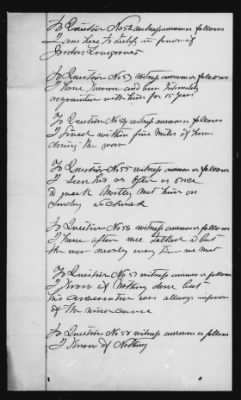 To Question No 52 witness answers as follows
I am here to testify in favor of
To Question No 53 witness answers as follows
I have known and been intimately
acquainted with him for 15 years
To Question No 54 witness answers as follows
I lived within five miles of him
during the war
To Question No 55 witness answers as follows
I seen his as often as once
a week Mostly met him on
Sunday at Church
To Question No 56 witness answers as follows
I have often we talked about
the war nearly every time we met
To Question No 57 witness answers as follows
I know of nothing done but
his conversation was always in favor
of the union cause
To Question No 58 witness answers as follows
I know of Nothing